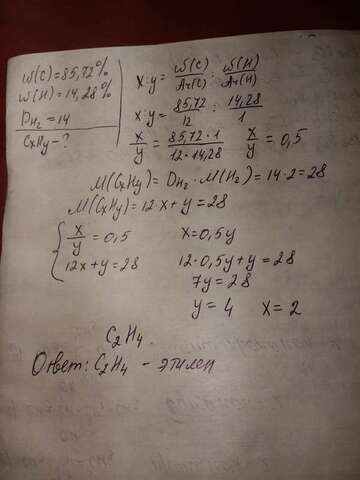 ω(C)=85,72%
ω(H)=14,28%
D_H₂=14
CxHy-?
x:y = ω(C)/Ar(C) : ω(H)/Ar(H)
x:y = 85,72/12 : 14,28/1
x/y = 85,72·1/12·14,28 x/y = 0,5
M(CxHy)= D_H₂·M(H₂)=14·2=28
M(CxHy)=12·x+y=28
{ x/y = 0,5 x=0,5y
12x+y=28 12·0,5y+y=28
7y=28
y=4 x=2
C₂H₄.
Ответ: C₂H₄ - этилен